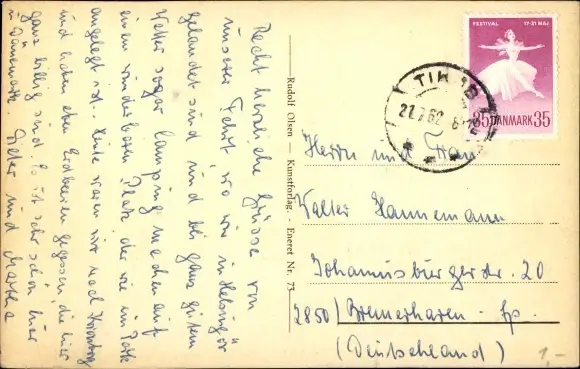 Recht herzliche Grüsse von
unserer Fahrt, wo wir in Helsingör
gelandet sind und bei ganz gutem
Wetter sogar Camping machen auf
einem wunderbaren Platz, der wie im Park
angelegt ist. Heute waren wir nach
und haben eben Erdbeeren gegessen, die hier
ganz billig sind. Es ist sehr schön hier
in Dänemark. Dieter und Martha
Rudolf Olsen — Kunstforlag. Eneret Nr. 73
FESTIVAL 17-31 MAJ
35 DANMARK 35
21.7.62
Herrn und Frau
Walter Hannemann
Johannesburgerstr. 20
2850) Bremerhaven - Lp.
(Deutschland)
1,-